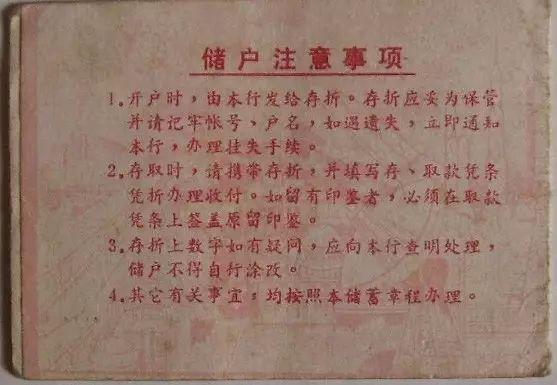 储户注意事项
1.开户时，由本行发给存折。存折应妥为保管
并请记牢帐号、户名，如遇遗失，立即通知
本行，办理挂失手续。
2.存取时，请携带存折，并填写存、取款凭条
凭折办理收付。如留有印鉴者，必须在取款
凭条上签盖原留印鉴。
3.存折上数字如有疑问，应向本行查明处理，
储户不得自行涂改。
4.其它有关事宜，均按照本储蓄章程办理。